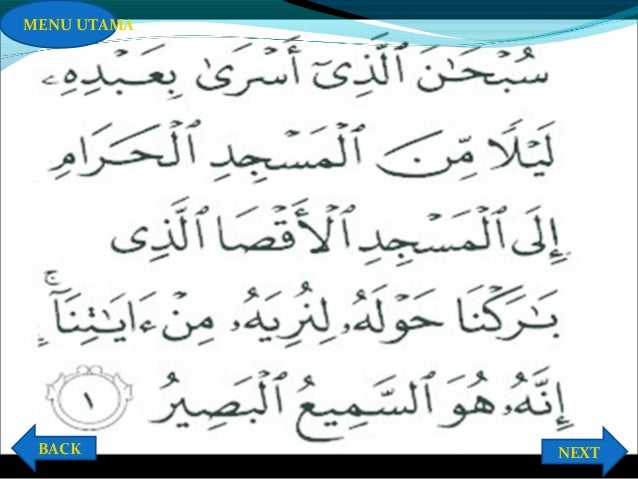 MENU UTAMA
سُبْحَـٰنَ ٱلَّذِىٓ أَسْرَىٰ بِعَبْدِهِۦ
لَيْلًا مِّنَ ٱلْمَسْجِدِ ٱلْحَرَامِ
إِلَى ٱلْمَسْجِدِ ٱلْأَقْصَا ٱلَّذِى
بَـٰرَكْنَا حَوْلَهُۥ لِنُرِيَهُۥ مِنْ ءَايَـٰتِنَآ ۚ
إِنَّهُۥ هُوَ ٱلسَّمِيعُ ٱلْبَصِيرُ ١
BACK
NEXT